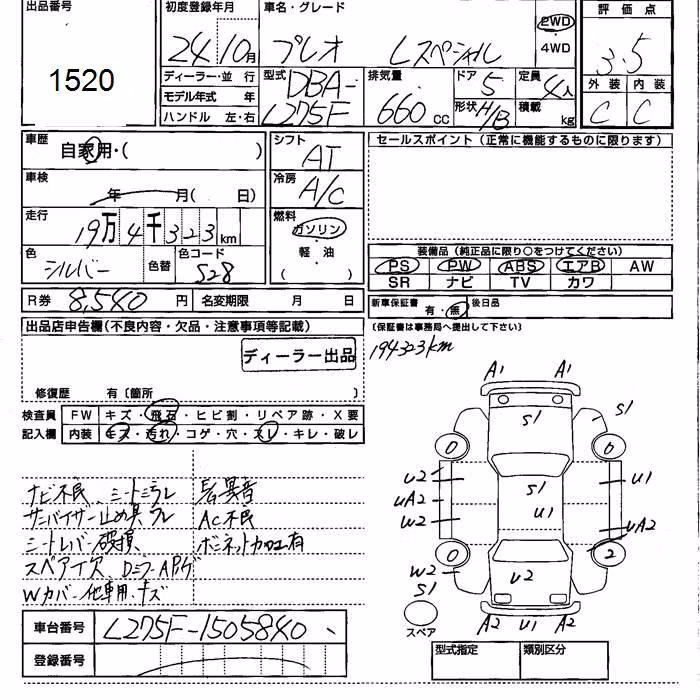 出品番号
1520
初度登録年月
24 10月
ディーラー・並行
モデル年式 年
ハンドル 左・右
車名・グレード
プレオ Lスペシャル
2WD
・
4WD
評価点
3.5
外装 内装
C C
型式 DBA-
L275F
排気量
660 cc
ドア 5
形状 H/B
定員
4人
積載
kg
車歴
自家用・( )
車検
年 月( 日)
走行
19万4千323km
色
シルバー
色替
色コード
S28
シフト
AT
冷房
A/C
燃料
ガソリン
軽・油
( )
セールスポイント(正常に機能するものに限ります)
装備品(純正品に限り○をつけてください)
PS PW ABS エアB AW
SR ナビ TV カワ
R券 8,540 円 名変期限 月 日
新車保証書 有・無 後日品
(保証書は事務局へ提出して下さい)
194323km
出品店申告欄(不良内容・欠品・注意事項等記載)
ディーラー出品
修復歴 有〔箇所 〕
検査員
記入欄
FW キズ・飛石・ヒビ割・リペア跡・X要
内装 キズ・汚れ・コゲ・穴・スレ・キレ・破レ
ナビ不良 シートシミスレ
サンバイザー止め具ワレ
シートレバー破損
スペア欠
Wカバー他車用・キズ
異音
AC不良
ボンネットカロ工有
A1 A1
S1 S1
0 0
U2 S1 U1
UA2 U1
W2 UA2
0 2
W2 U2
S1
スペア
A2 U1 A2
車台番号 L275F-1505840
登録番号
型式指定 類別区分